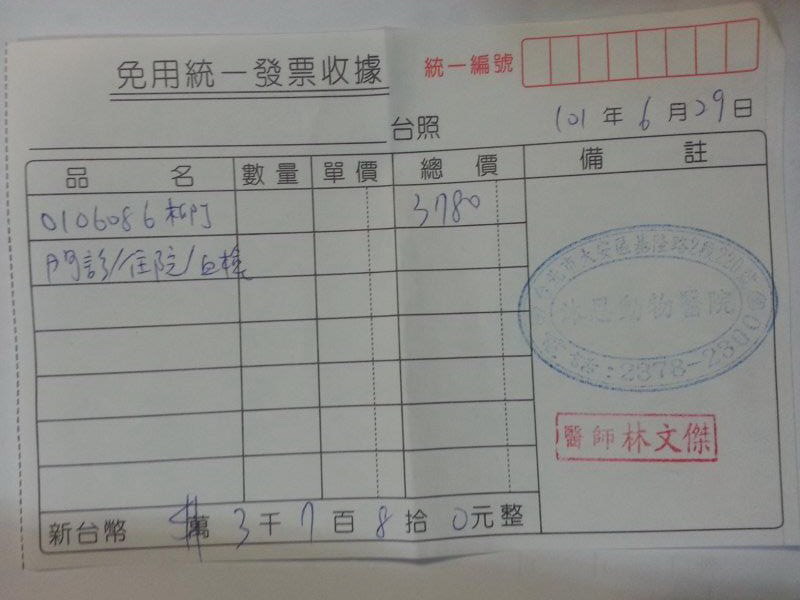 免用統一發票收據
統一編號
台照
101年6月29日
品名 數量 單價 總價 備註
0106086 3780
門診/住院/血檢
台北市大安區基隆路2段220號
動物醫院
電話:2378-2300
醫師林文傑
新台幣 萬3千7百8拾0元整